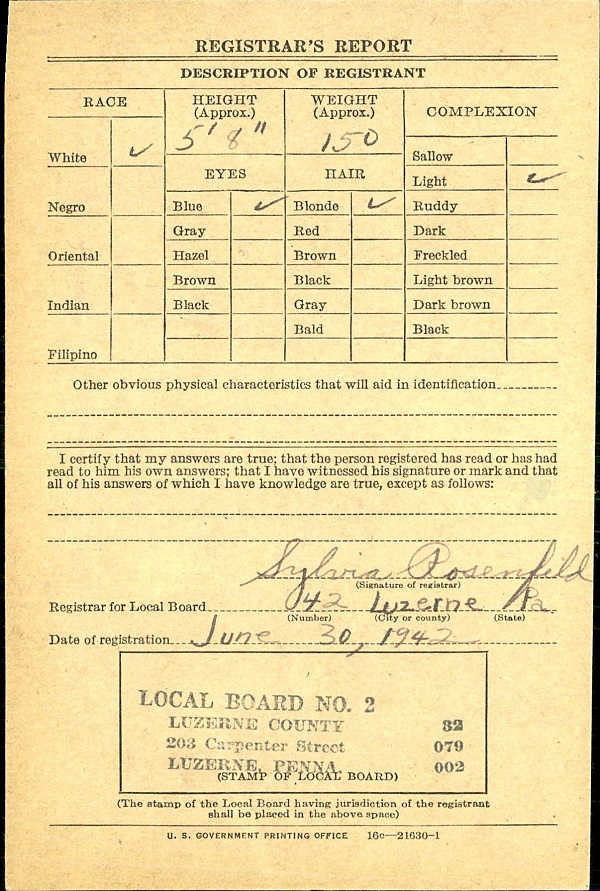 REGISTRAR'S REPORT
DESCRIPTION OF REGISTRANT
RACE
HEIGHT
(Approx.)
WEIGHT
(Approx.)
COMPLEXION
5' 8"
150
White ✓
Sallow
EYES
HAIR
Light ✓
Negro
Blue ✓
Blonde ✓
Ruddy
Gray
Red
Dark
Oriental
Hazel
Brown
Freckled
Brown
Black
Light brown
Indian
Black
Gray
Dark brown
Bald
Black
Filipino
Other obvious physical characteristics that will aid in identification
I certify that my answers are true; that the person registered has read or has had
read to him his own answers; that I have witnessed his signature or mark and that
all of his answers of which I have knowledge are true, except as follows:
Sylvia Rosenfeld
(Signature of registrar)
Registrar for Local Board 42 Luzerne Pa.
(Number) (City or county) (State)
Date of registration June 30, 1942
LOCAL BOARD NO. 2
LUZERNE COUNTY 82
203 Carpenter Street 079
LUZERNE, PENNA 002
(STAMP OF LOCAL BOARD)
(The stamp of the Local Board having jurisdiction of the registrant
shall be placed in the above space)
U. S. GOVERNMENT PRINTING OFFICE 16c—21630-1